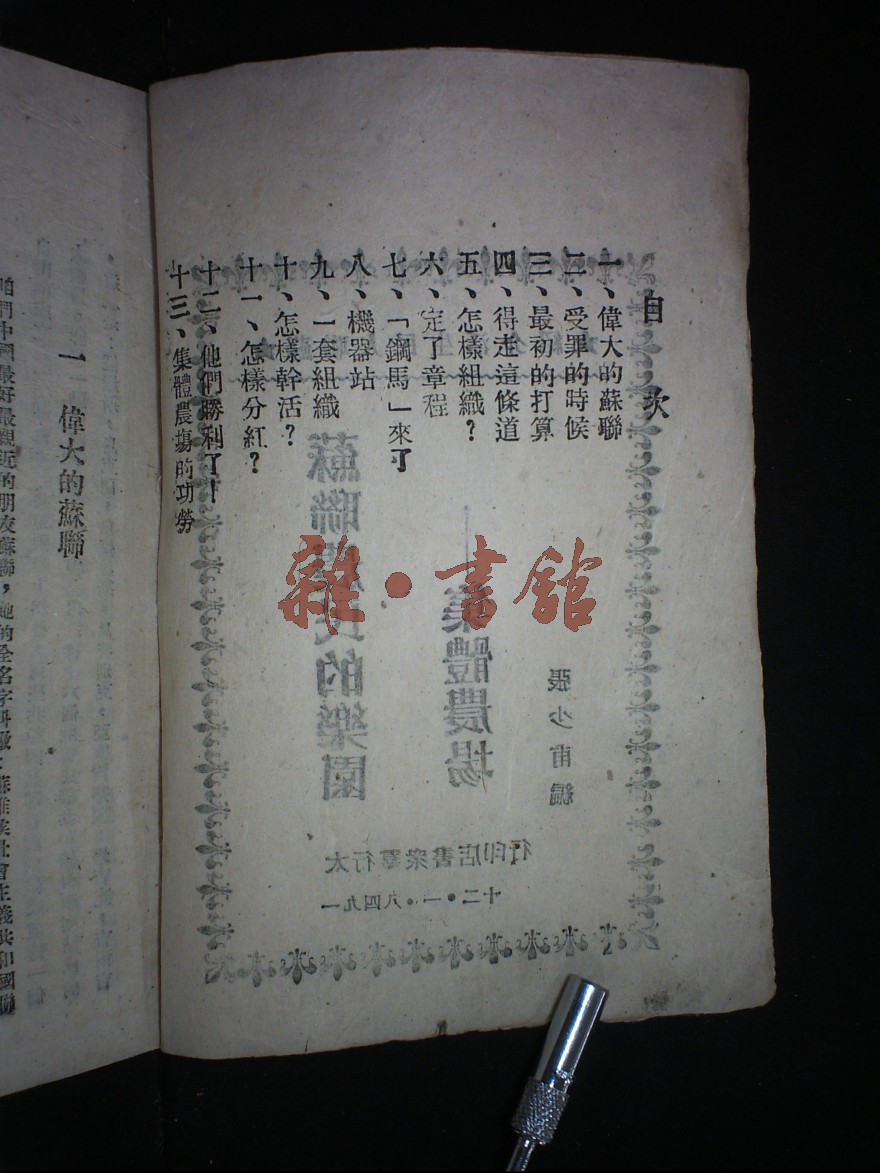 目次
一、偉大的蘇聯
二、受罪的時候
三、最初的打算
四、得走這條道
五、怎樣組織？
六、定了章程
七、「鋼馬」來了
八、機器站
九、一套組織
十、怎樣幹活？
十一、怎樣分紅？
十二、他們勝利了！
十三、集體農場的功勞
張少甫編
——集體農場
蘇聯農民的樂園
太行羣衆書店印行
一九四八・一・二十
雜・書館
一 偉大的蘇聯
咱們中國最好最親近的朋友蘇聯，她的全名字叫做：蘇維埃社會主義共和國聯